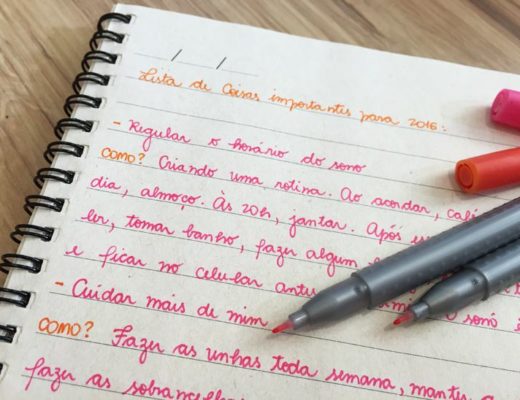 Lista de Coisas importantes para 2016:
- Regular o horário do sono
como? Criando uma rotina. Ao acordar, café
dia, almoço. Às 20h, jantar. Após
ler, tomar banho, fazer algum
e ficar no celular antes o sono
- Cuidar mais de mim
como? Fazer as unhas toda semana,
fazer as